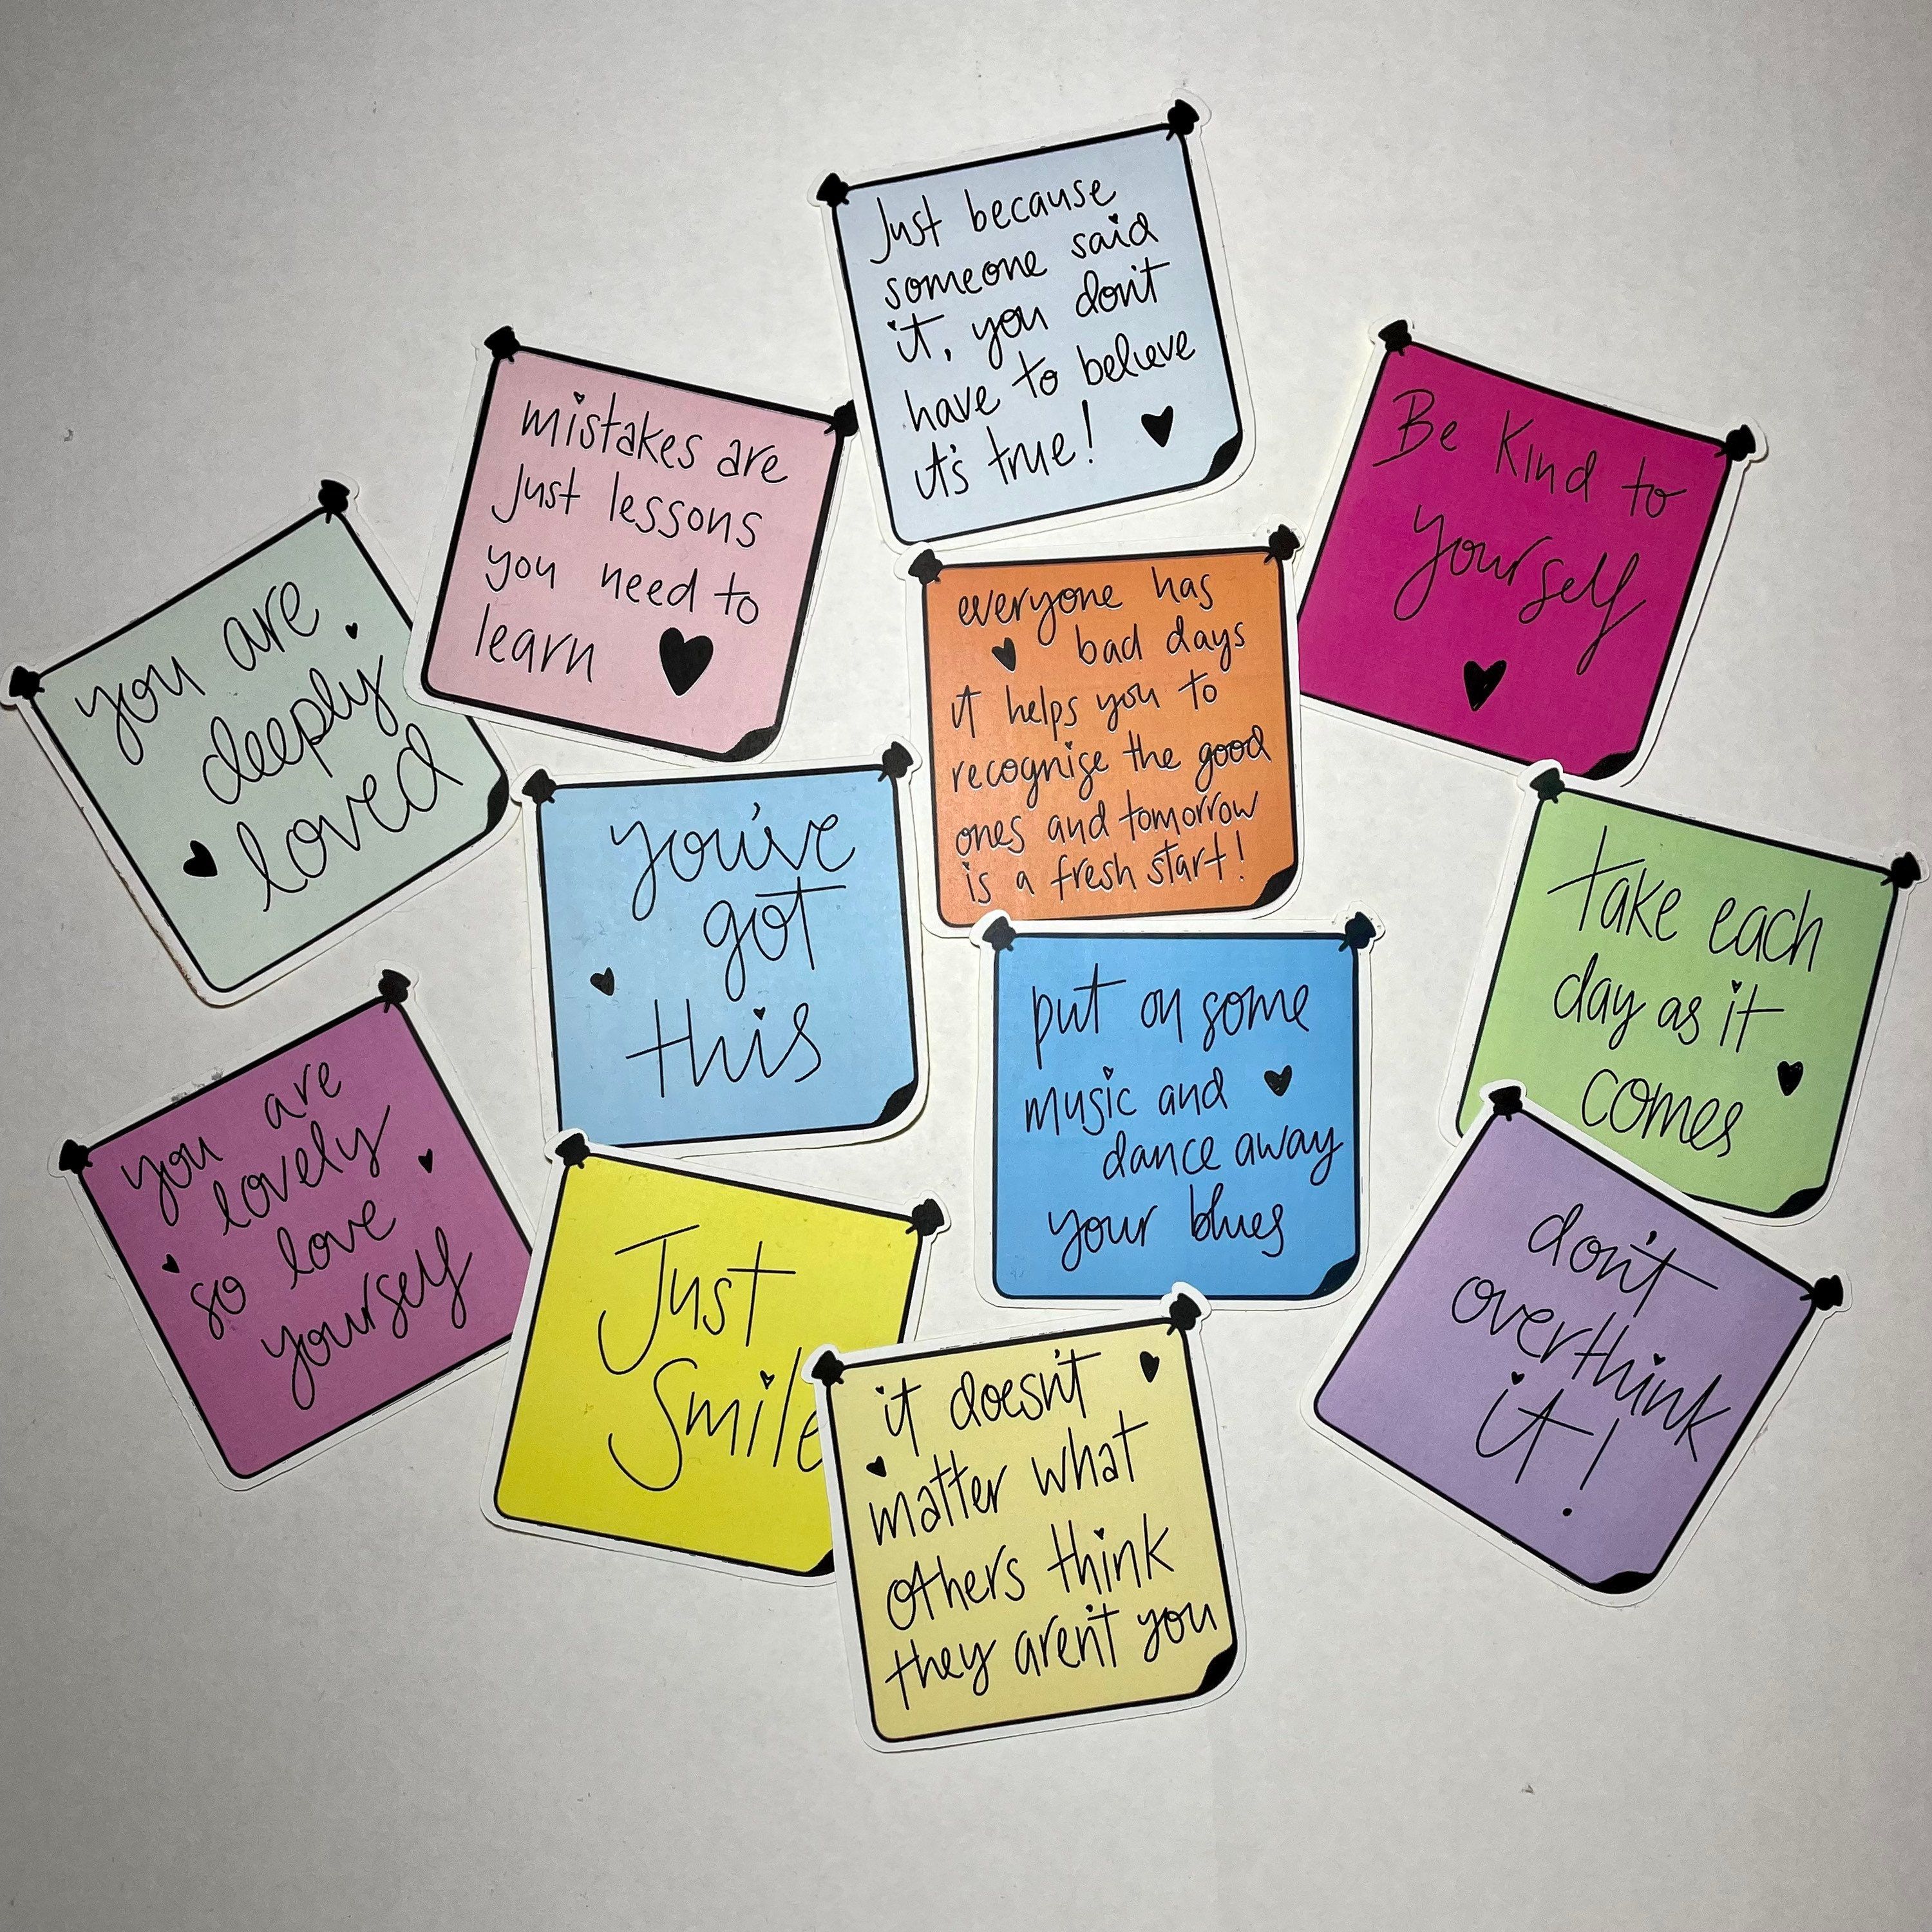 Just because
someone said
it, you don't
have to believe
it's true!
mistakes are
just lessons
you need to
learn
Be Kind to
yourself
you are
deeply
loved
everyone has
bad days
it helps you to
recognise the good
ones and tomorrow
is a fresh start!
you've
got
this
take each
day as it
comes
put on some
music and
dance away
your blues
you are
lovely
so love
yourself
Just
Smile
don't
overthink
it!
it doesn't
matter what
others think
they aren't you